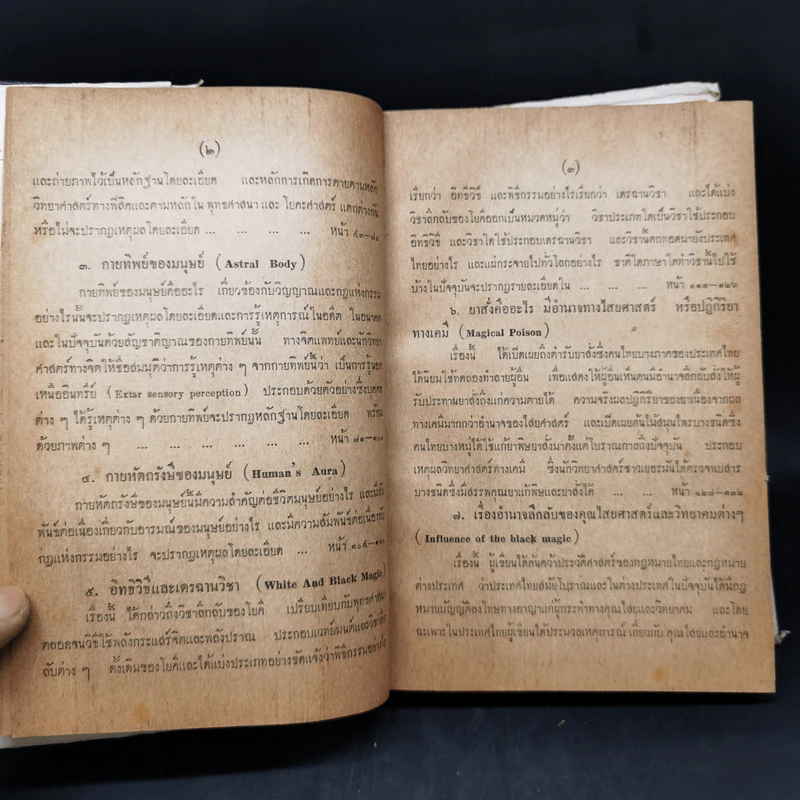 (๒)
และถ่ายภาพไว้เป็นหลักฐานโดยละเอียด และหลักการเกิดการตายตามหลัก
วิทยาศาสตร์ทางฟิสิคและตามหลักใน พุทธศาสนา และ โยคะศาสตร์ แตกต่างกัน
หรือไม่จะปรากฎเหตุผลโดยละเอียด ... ... ... ... หน้า ๕๓-๘๑
๓. กายทิพย์ของมนุษย์ (Astral Body)
กายทิพย์ของมนุษย์คืออะไร เกี่ยวข้องกับวิญญาณและกฎแห่งกรรม
อย่างไรนั้นจะปรากฎเหตุผลโดยละเอียดและการรู้เหตุการณ์ในอดีต ในอนาคต
และในปัจจุบันด้วยสัญชาติญาณของกายทิพย์นั้น ทางจิตแพทย์และนักวิทยา
ศาสตร์ทางจิตให้ชื่อสมมุติว่าการรู้บางต่าง ๆ จากกายทิพย์นี้ว่า เป็นการรู้นอก
เหนืออินทรีย์ (Extar sensory perception) ประกอบด้วยตัวอย่างซึ่งบุคคล
ต่าง ๆ ได้รู้เหตุต่าง ๆ ด้วยกายทิพย์จะปรากฎหลักฐานโดยละเอียด พร้อม
ด้วยภาพต่าง ๆ ... ... ... ... ... ... หน้า ๘๑-๑๐๔
๔. กายหัตถรังษีของมนุษย์ (Human's Aura)
กายหัตถรังษีของมนุษย์นี้มีความสำคัญต่อชีวิตมนุษย์อย่างไร และมีสัม
พันธ์ต่อเนื่องเกี่ยวกับอารมณ์ของมนุษย์อย่างไร และมีความสัมพันธ์ต่อเนื่องกับ
กฎแห่งกรรมอย่างไร จะปรากฎเหตุผลโดยละเอียด ... หน้า
๕. อิทธิวิธีและเดรฉานวิชา (White And Black Magic)
เรื่องนี้ ได้กล่าวถึงวิชาลึกลับของโยคี เปรียบเทียบกับพุทธศาสนา
ตลอดจนวิธีใช้พลังกระแสจิตและพลังปราณ ประกอบเวทย์มนต์และวิชาลึก
ลับต่าง ๆ ดั้งเดิมของโยคีและได้แบ่งประเภทอย่างชัดแจ้งว่าพิธีกรรมอย่างไร
(๓)
เรียกว่า อิทธิวิธี และพิธีกรรมอย่างไรเรียกว่า เดรฉานวิชา และได้แบ่ง
วิชาลึกลับของโยคีออกเป็นหมวดหมู่ว่า วิชาประเภทใดเป็นวิชาใช้ประกอบ
อิทธิวิธี และวิชาใดใช้ประกอบเดรฉานวิชา และวิชานี้ตกทอดมายังประเทศ
ไทยอย่างไร และแผ่กระจายไปทั่วโลกอย่างไร ชาติใดภาษาใดทำวิชานี้ไปใช้
บ้างในปัจจุบันจะปรากฎรายละเอียดใน ... ... หน้า
๖. ยาสั่งคืออะไร มีอำนาจทางไสยศาสตร์ หรือปฏิกิริยา
ทางเคมี (Magical Poison)
เรื่องนี้ ได้เปิดเผยถึงตำรับยาสั่งซึ่งคนไทยบางภาคของประเทศไทย
ได้นิยมใช้ทดลองทำลายผู้อื่น เพื่อแสดงให้ผู้อื่นเห็นตนมีอำนาจลึกลับสั่งให้ผู้
รับประทานยาสั่งถึงแก่ความตายได้ ความจริงผลปฏิกิริยาของยาเนื่องจากผล
ทางเคมีมากกว่าอำนาจของไสยศาสตร์ และเปิดเผยต้นไม้สมุนไพรบางชนิดซึ่ง
คนไทยบางหมู่ได้ใช้แก้ยาพิษยาสั่งมาตั้งแต่โบราณกาลถึงปัจจุบัน ประกอบ
เหตุผลวิทยาศาสตร์ทางเคมี ซึ่งนักวิทยาศาสตร์ชาวเยอรมันได้ตรวจพบสาร
บางชนิดซึ่งมีสรรพคุณยาแก้พิษและยาสั่งได้ ... ... หน้า ๑๒๘-๑๓๒
๗. เรื่องอำนาจลึกลับของคุณไสยศาสตร์และวิทยาคมต่างๆ
(Influence of the black magic)
เรื่องนี้ ผู้เขียนได้ค้นคว้าประวัติศาสตร์ของกฎหมายไทยและกฎหมาย
ต่างประเทศ ว่าประเทศไทยสมัยโบราณและในต่างประเทศในปัจจุบันได้มีกฎ
หมายบัญญัติลงโทษทางอาญาแก่ผู้กระทำทางคุณไสยและวิทยาคม และโดย
ฉะเพาะในประเทศไทยผู้เขียนได้ประมวลเหตุการณ์ เกี่ยวกับ คุณไสยและอำนาจ